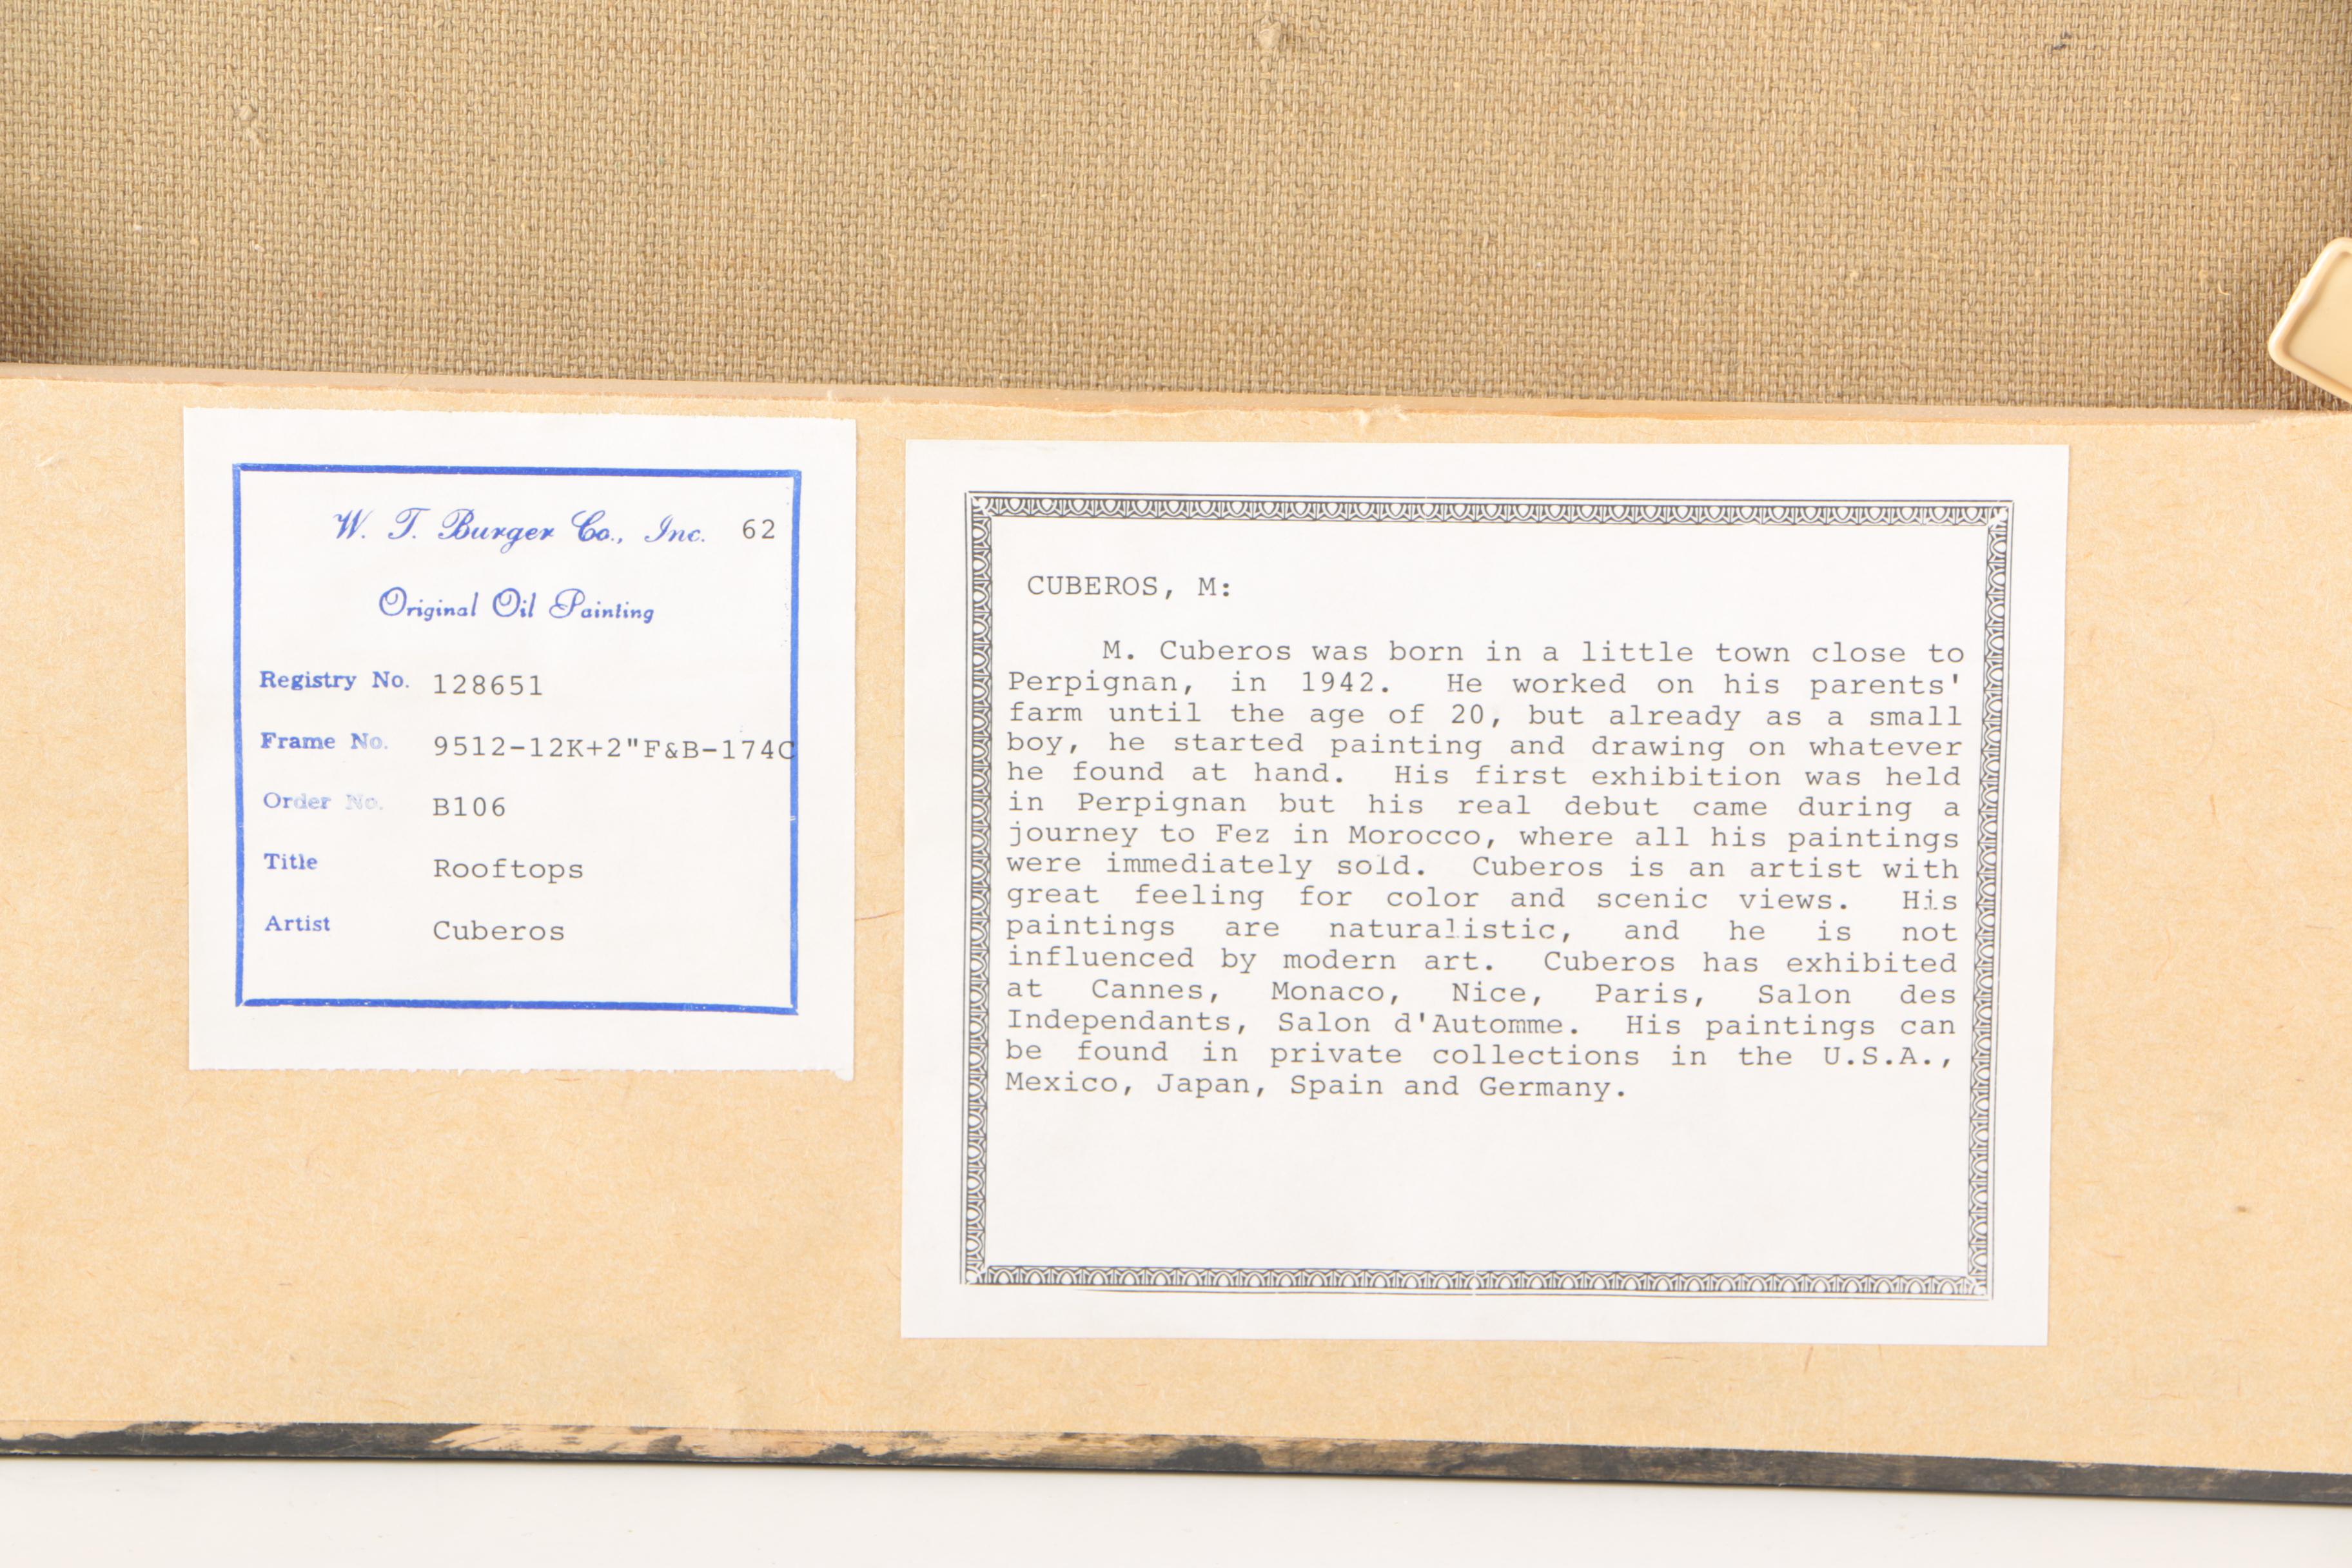 W. T. Burger Co., Inc. 62
Original Oil Painting
Registry No. 128651
Frame No. 9512-12K+2"F&B-174C
Order No. B106
Title Rooftops
Artist Cuberos
CUBEROS, M:
M. Cuberos was born in a little town close to
Perpignan, in 1942. He worked on his parents'
farm until the age of 20, but already as a small
boy, he started painting and drawing on whatever
he found at hand. His first exhibition was held
in Perpignan but his real debut came during a
journey to Fez in Morocco, where all his paintings
were immediately sold. Cuberos is an artist with
great feeling for color and scenic views. His
paintings are naturalistic, and he is not
influenced by modern art. Cuberos has exhibited
at Cannes, Monaco, Nice, Paris, Salon des
Independants, Salon d'Automme. His paintings can
be found in private collections in the U.S.A.,
Mexico, Japan, Spain and Germany.